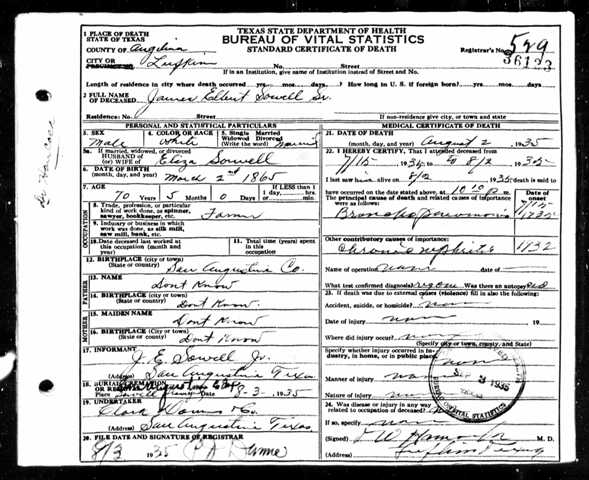 TEXAS STATE DEPARTMENT OF HEALTH
BUREAU OF VITAL STATISTICS
STANDARD CERTIFICATE OF DEATH
1 PLACE OF DEATH
STATE OF TEXAS
COUNTY OF Angelina
CITY OR PRECINCT NO. Lufkin
No. Street
If in an Institution, give name of Institution instead of Street and No.
Registrar's No. 529
36123
Length of residence in city where death occurred yrs. mos. days. How long in U. S. if foreign born? yrs. mos. days
2 FULL NAME OF DECEASED James Sowell Sr.
Residence: No. Street
If non-residence give city, or town and state
PERSONAL AND STATISTICAL PARTICULARS
3. SEX Male
4. COLOR OR RACE White
5. Single Married Widowed Divorced (Write the word) Married
5a. If married, widowed, or divorced HUSBAND OF (or) WIFE OF Eliza Sowell
6. DATE OF BIRTH (month, day, and year) March 2nd 1865
7. AGE 70 Years 5 Months 0 Days If LESS than 1 day, hrs. min.
OCCUPATION
8. Trade, profession, or particular kind of work done, as spinner, sawyer, bookkeeper, etc. Farmer
9. Industry or business in which work was done, as silk mill, saw mill, bank, etc.
10. Date deceased last worked at this occupation (month and year)
11. Total time (years) spent in this occupation
12. BIRTHPLACE (city or town) (State or country) San Augustine Co.
FATHER
13. NAME Dont Know
14. BIRTHPLACE (city or town) (State or country) Dont Know.
MOTHER
15. MAIDEN NAME Dont Know
16. BIRTHPLACE (City or town) (State or country) Dont Know
17. INFORMANT J. E. Sowell Jr.
(Address) San Augustine Texas
18. BURIAL, CREMATION OR REMOVAL
Place Date 8-3-1935
19. UNDERTAKER Clark Downs & Co.
(Address) San Augustine Texas.
20. FILE DATE AND SIGNATURE OF REGISTRAR
8/3 1935
MEDICAL CERTIFICATE OF DEATH
21. DATE OF DEATH
(month, day, and year) August 2 1935
22. I HEREBY CERTIFY, That I attended deceased from
7/15 1935 to 8/2 1935
I last saw him alive on 8/2 1935 death is said to
have occurred on the date stated above, at 10 10 P. m.
The principal cause of death and related causes of importance were as follows:
Date of onset
Broncho pneumonia 7/15 1935
Other contributory causes of importance:
Chronic nephritis 1932
Name of operation none date of
What test confirmed diagnosis? Was there an autopsy?
23. If death was due to external causes (violence) fill in also the following:
Accident, suicide, or homicide?
Date of injury none 19
Where did injury occur?
(Specify city or town, county, and State)
Specify whether injury occurred in industry, in home, or in public place.
Manner of injury
Nature of injury
24. Was disease or injury in any way related to occupation of deceased?
If so, specify
(Signed) M. D.
(Address) Lufkin Texas
SEP 3 1935
VITAL STATISTICS